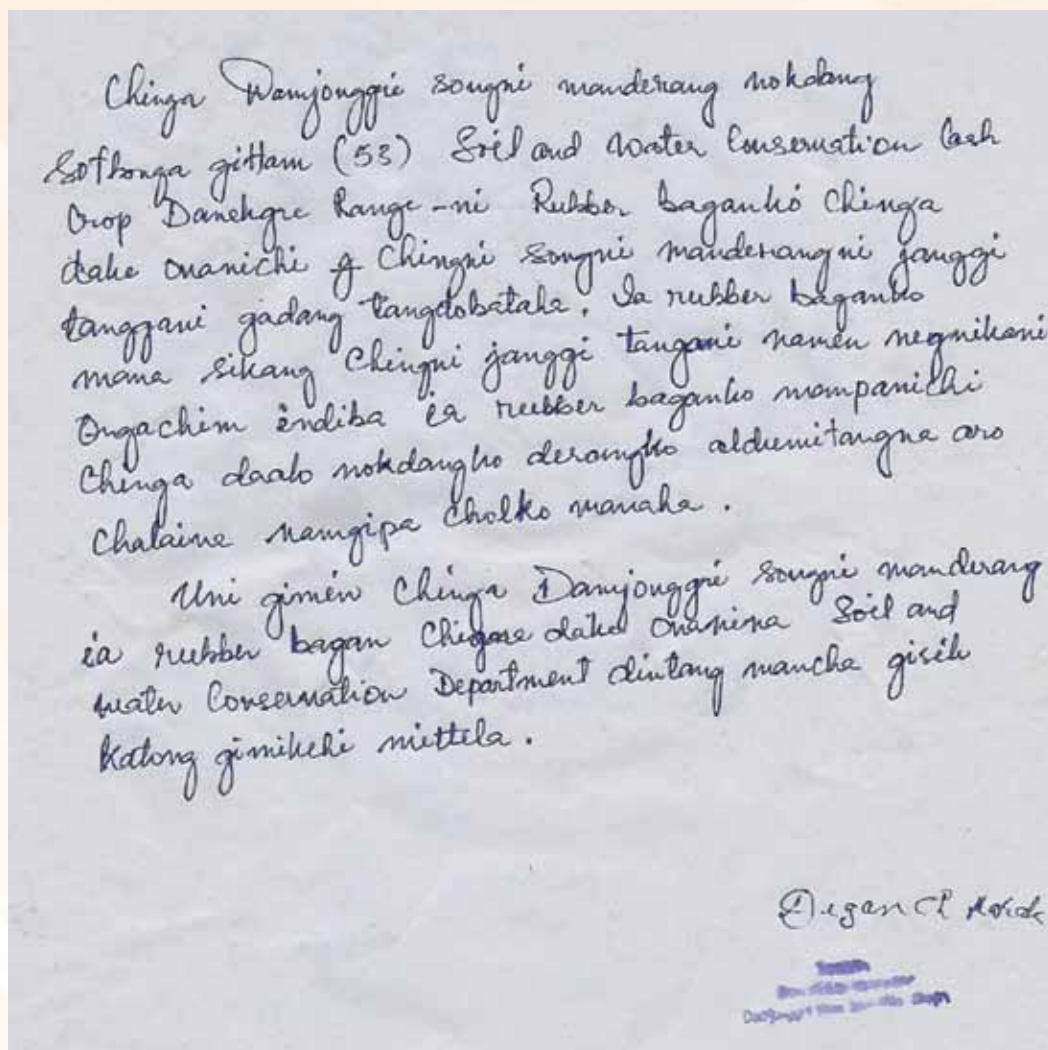 Chinga Damjonggre songni manderang nokdang
Sotbonga gittam (53) Soil and water Conservation Cash
Crop Danekgre Range-ni Rubber baganko chinga
dake onanichi chingni songni manderangni janggi
tanggani gadang tangdobataha. Ia rubber baganko
mana sikang chingni janggi tangani namen negnikani
Ongachim indiba ia rubber baganko manpanichi
chinga daalo nokdangko derangko aldumitangna aro
chalaina namgipa cholko manaha.
Uni gimin chinga Damjonggre songni manderang
ia rubber bagan dake onanina Soil and
water Conservation Department dintang mancha gisik
katong gimikchi mittela.